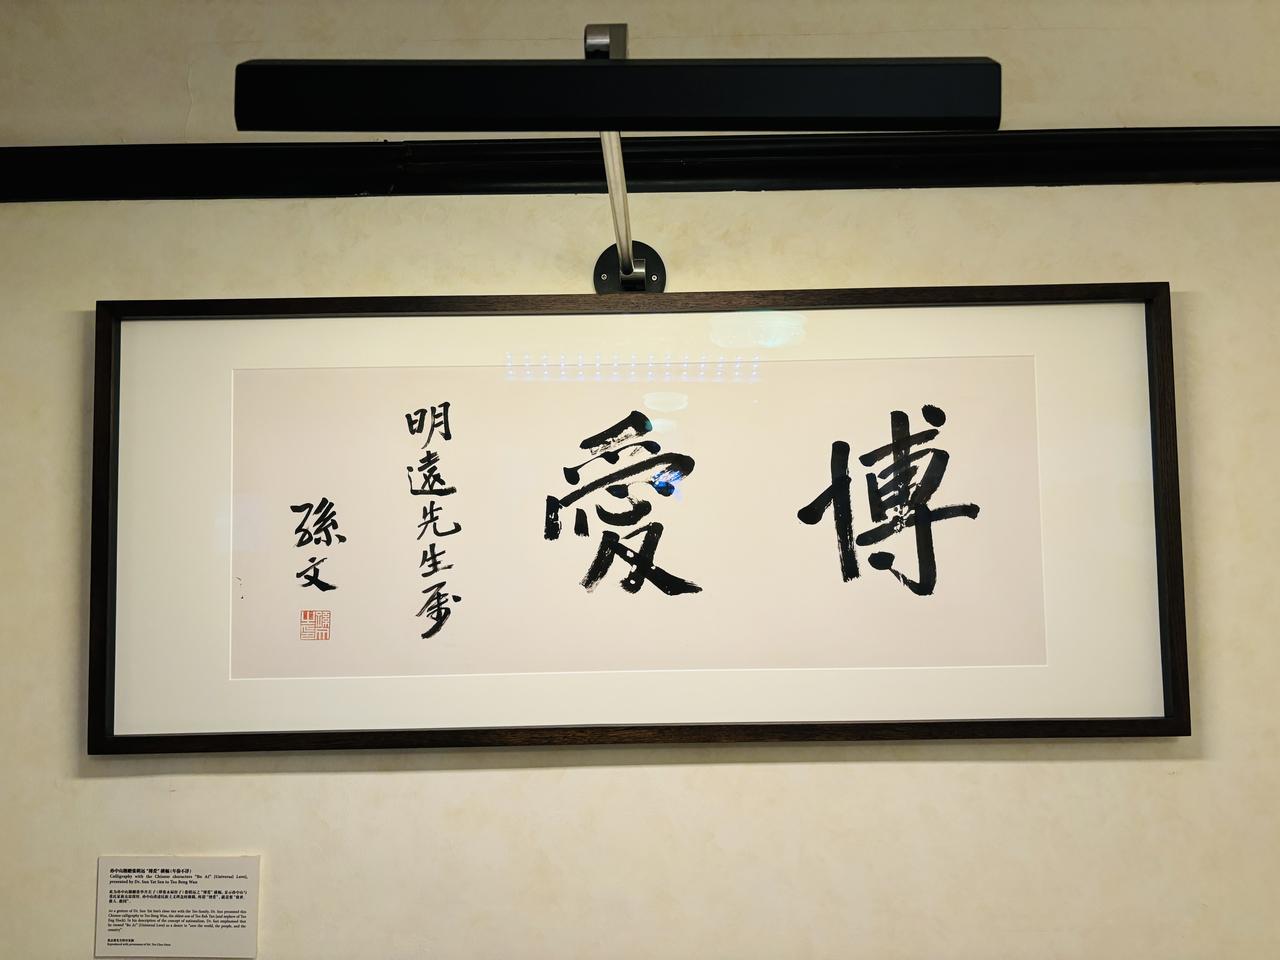 博愛
明遠先生属
孫文
孙中山题赠张明远“博爱”横幅(年份不详)
Calligraphy with the Chinese characters "Bo Ai" (Universal Love),
presented by Dr. Sun Yat Sen to Teo Beng Wan
As a gesture of Dr. Sun Yat Sen's close ties with the Teo family, Dr. Sun presented this
Chinese calligraphy to Teo Beng Wan, the eldest son of Teo Bah Tan (and nephew of Teo
Eng Hock). In his description of the concept of nationalism, Dr. Sun emphasised that
he viewed "Bo Ai" (Universal Love) as a desire to "save the world, the people, and the
country"